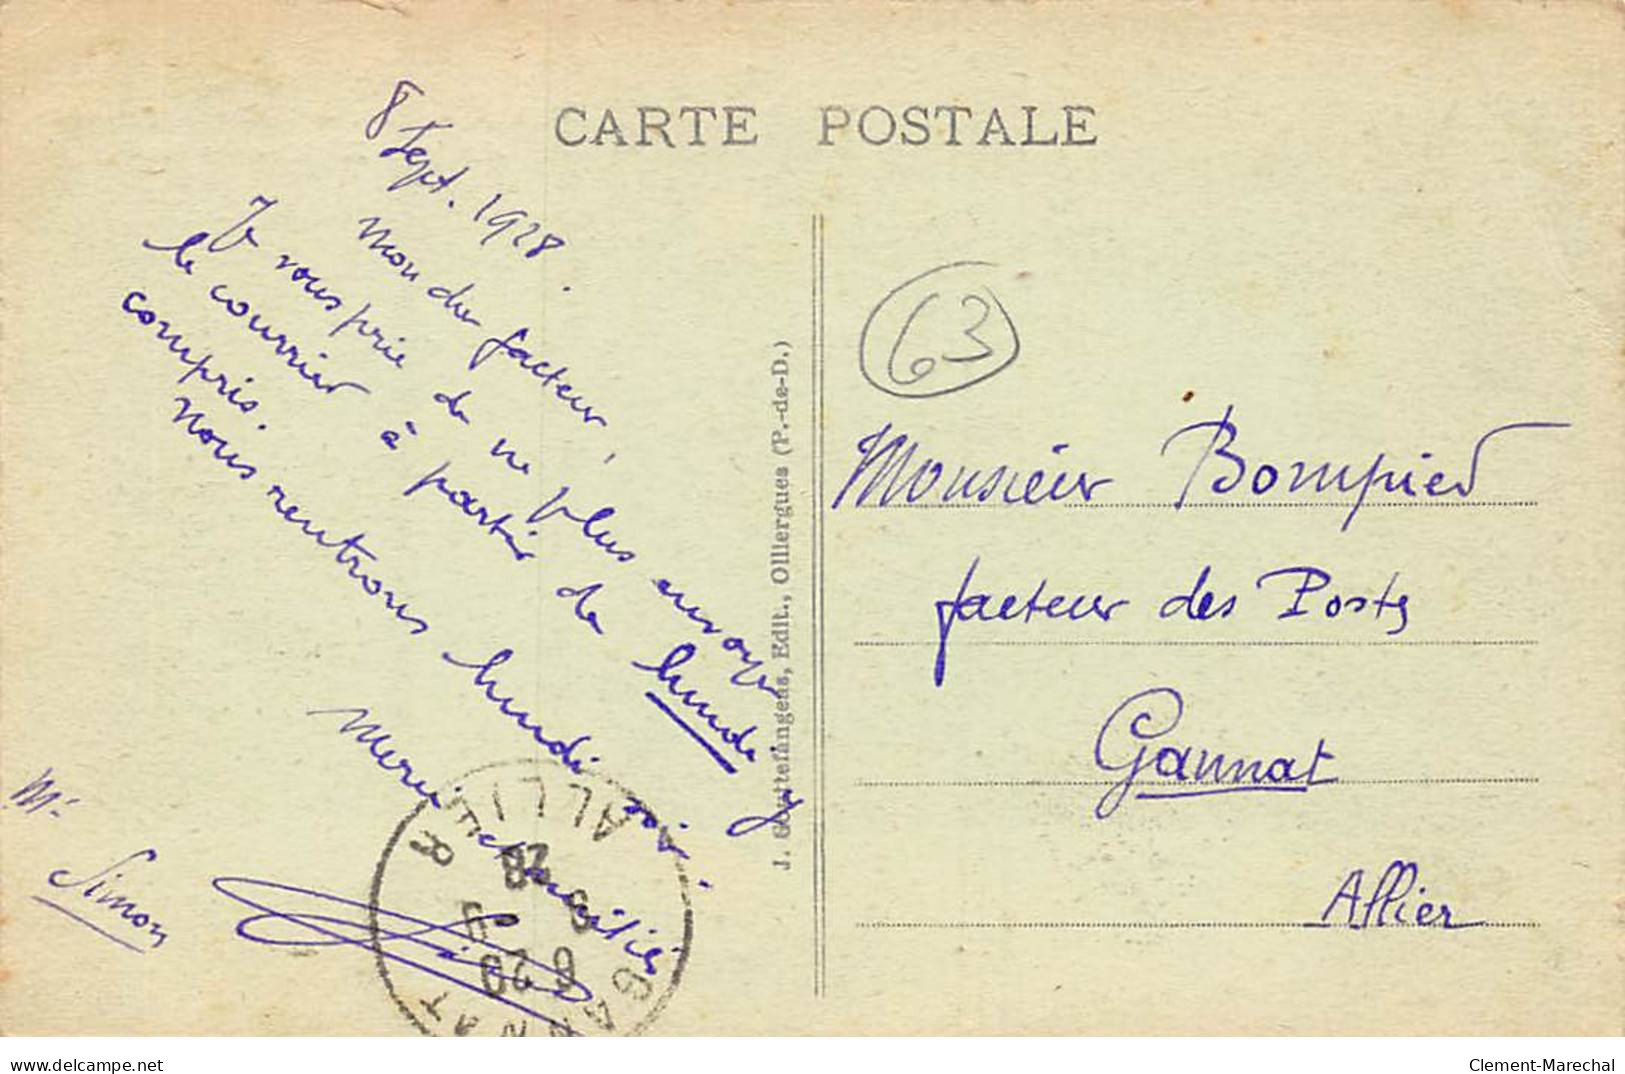 CARTE POSTALE
8 Sept. 1928.
Mon cher facteur,
Je vous prie de ne plus envoyer
le courrier à partir de lundi
compris.
Nous rentrons lundi soir.
Merci et amitiés
Mr
Simon
J. Gouttefangeas, Edit., Olliergues (P.-de-D.)
63
Monsieur Bompied
facteur des Postes
Gannat
Allier
GANNAT
ALLIER
delcampe.net
Clement-Marechal